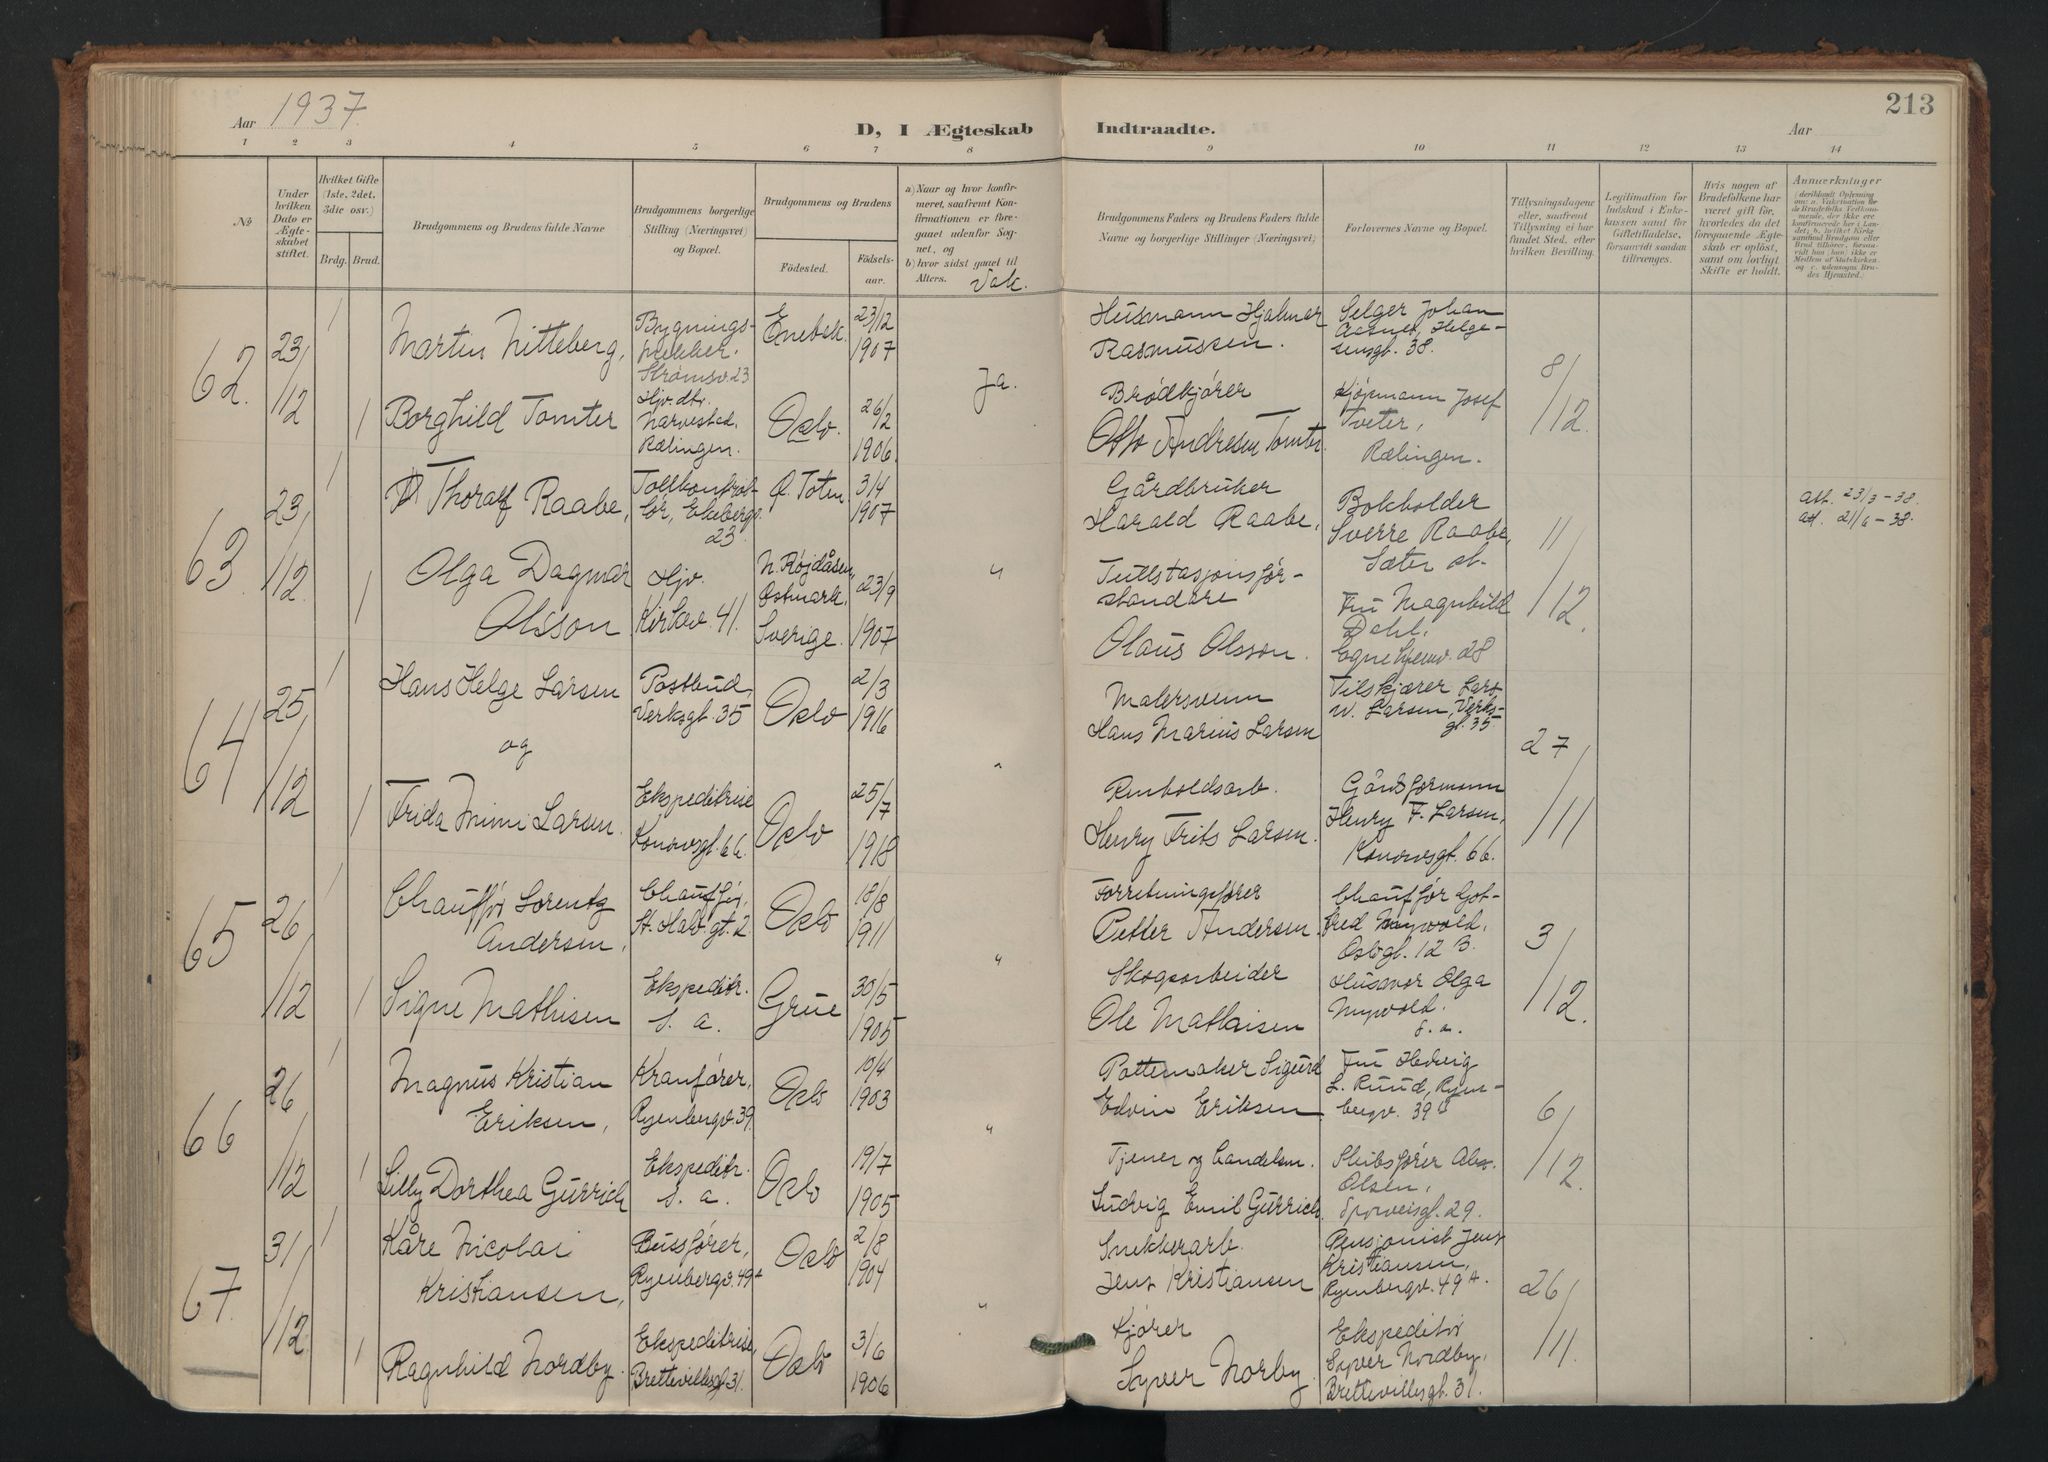 Aar 1937.
D, I Ægteskab Indtraadte.
213
Aar
1 2 3 4 5 6 7 8 9 10 11 12 13 14
No.
Under hvilken Dato er Ægteskabet stiftet.
Hvilket Gifte (1ste, 2det, 3die osv.)
Brdg. Brud.
Brudgommens og Brudens fulde Navne
Brudgommens borgerlige Stilling (Næringsvei) og Bopæl.
Brudgommens og Brudens
Födested. Födselsaar.
a) Naar og hvor konfirmeret, saafremt Konfirmationen er foregaaet udenfor Sognet, og
b) hvor sidst gaaet til Alters.
Vak.
Brudgommens Faders og Brudens Faders fulde Navne og borgerlige Stillinger (Næringsvei)
Forlovernes Navne og Bopæl.
Tillysningsdagene eller, saafremt Tillysning ei har fundet Sted, efter hvilken Bevilling.
Legitimation for Indskud i Enkekassen samt for Giftetilladelse, forsaavidt saadan tiltrænges.
Hvis nogen af Brudefolkene har været gift för, hvorledes da det foregaaende Ægteskab er oplöst, samt om lovligt Skifte er holdt.
Anmærkninger
62.
23/12
1
Martin Nitteberg,
Bygnings-
snekker.
Strømsv. 23
Enebak.
23/12
1907
Husmann Hjalmar
Rasmussen.
Selger Johan
Aasnes, Helge-
sensgt. 38.
1
Borghild Tomter
Hjv. dtr.
Narvestad,
Rælingen.
Oslo.
26/2
1906.
Ja.
Brødkjører
Otto Andresen Tomter
Kjøpmann Josef
Tveter,
Rælingen.
8/12.
63.
23/12.
1
Thoralf Raabe,
Tollkontrol-
lør, Ekebergv.
23.
Ø. Toten
3/4
1907
Gårdbruker
Harald Raabe,
Bokholder
Sverre Raabe,
Sæter st.
11/12.
att. 23/3-38.
att. 21/6-38.
1
Olga Dagmar
Olsson
Hjv.
Kirkev. 41.
N. Røjdåsen,
Østmark,
Sverige.
23/9
1907
"
Tullstasjonsfør-
standare
Olaus Olsson.
Fru Magnhild
Dahl,
Egnehjemv. 28
64
25/12
1
Hans Helge Larsen
og
Postbud,
Verksgt. 35
Oslo
2/3
1916
Malersvenn
Hans Marius Larsen
Tilskjærer Lars
W. Larsen, Verks-
gt. 35.
27/11
1
Frida Mimi Larsen.
Ekspeditrise
Konowsgt. 66.
Oslo
25/7
1918
"
Renholdsarb.
Henry Frits Larsen.
Gårdsformann
Henry F. Larsen,
Konowsgt. 66.
65
26/12
1
Chauffør Lorentz
Andersen,
Chauffør,
St. Halv. gt. 2.
Oslo
18/8
1911
Forretningsfører
Petter Andersen.
Chauffør Got-
fred Myrvold,
Oslogt. 12 B.
3/12.
1
Signe Mathisen
Ekspeditr.
s. a.
Grue
30/5
1905
"
Skogsarbeider
Ole Mathisen
Husmor Olga
Myrvold.
s. a.
66
26/12
Magnus Kristian
Eriksen,
Kranfører,
Ryenbergv. 39.
Oslo
10/4
1903
Pottemaker Sigurd
Edvin Eriksen
Fru Hedvig
L. Ruud, Ryen-
bergv. 39
6/12.
1
Lilly Dorthea Gürrich
Ekspeditr.
s. a.
Oslo
19/7
1905
"
Tjener og handelsm.
Ludvig Emil Gürrich.
Skibsfører Alex.
Olsen,
Sporveisgt. 29.
67
31/12.
1
Kåre Nicolai
Kristiansen,
Bussfører,
Ryenbergv. 49 A
Oslo
2/8
1904
Snekkerarb.
Jens Kristiansen
Pensjonist Jens
Kristiansen,
Ryenbergv. 49 A.
26/11.
1
Ragnhild Nordby.
Ekspeditrise,
Brettevillesgt. 31.
Oslo
3/6
1906
"
Kjører
Syver Norby.
Ekspeditør
Syver Nordby,
Brettevillesgt. 31.